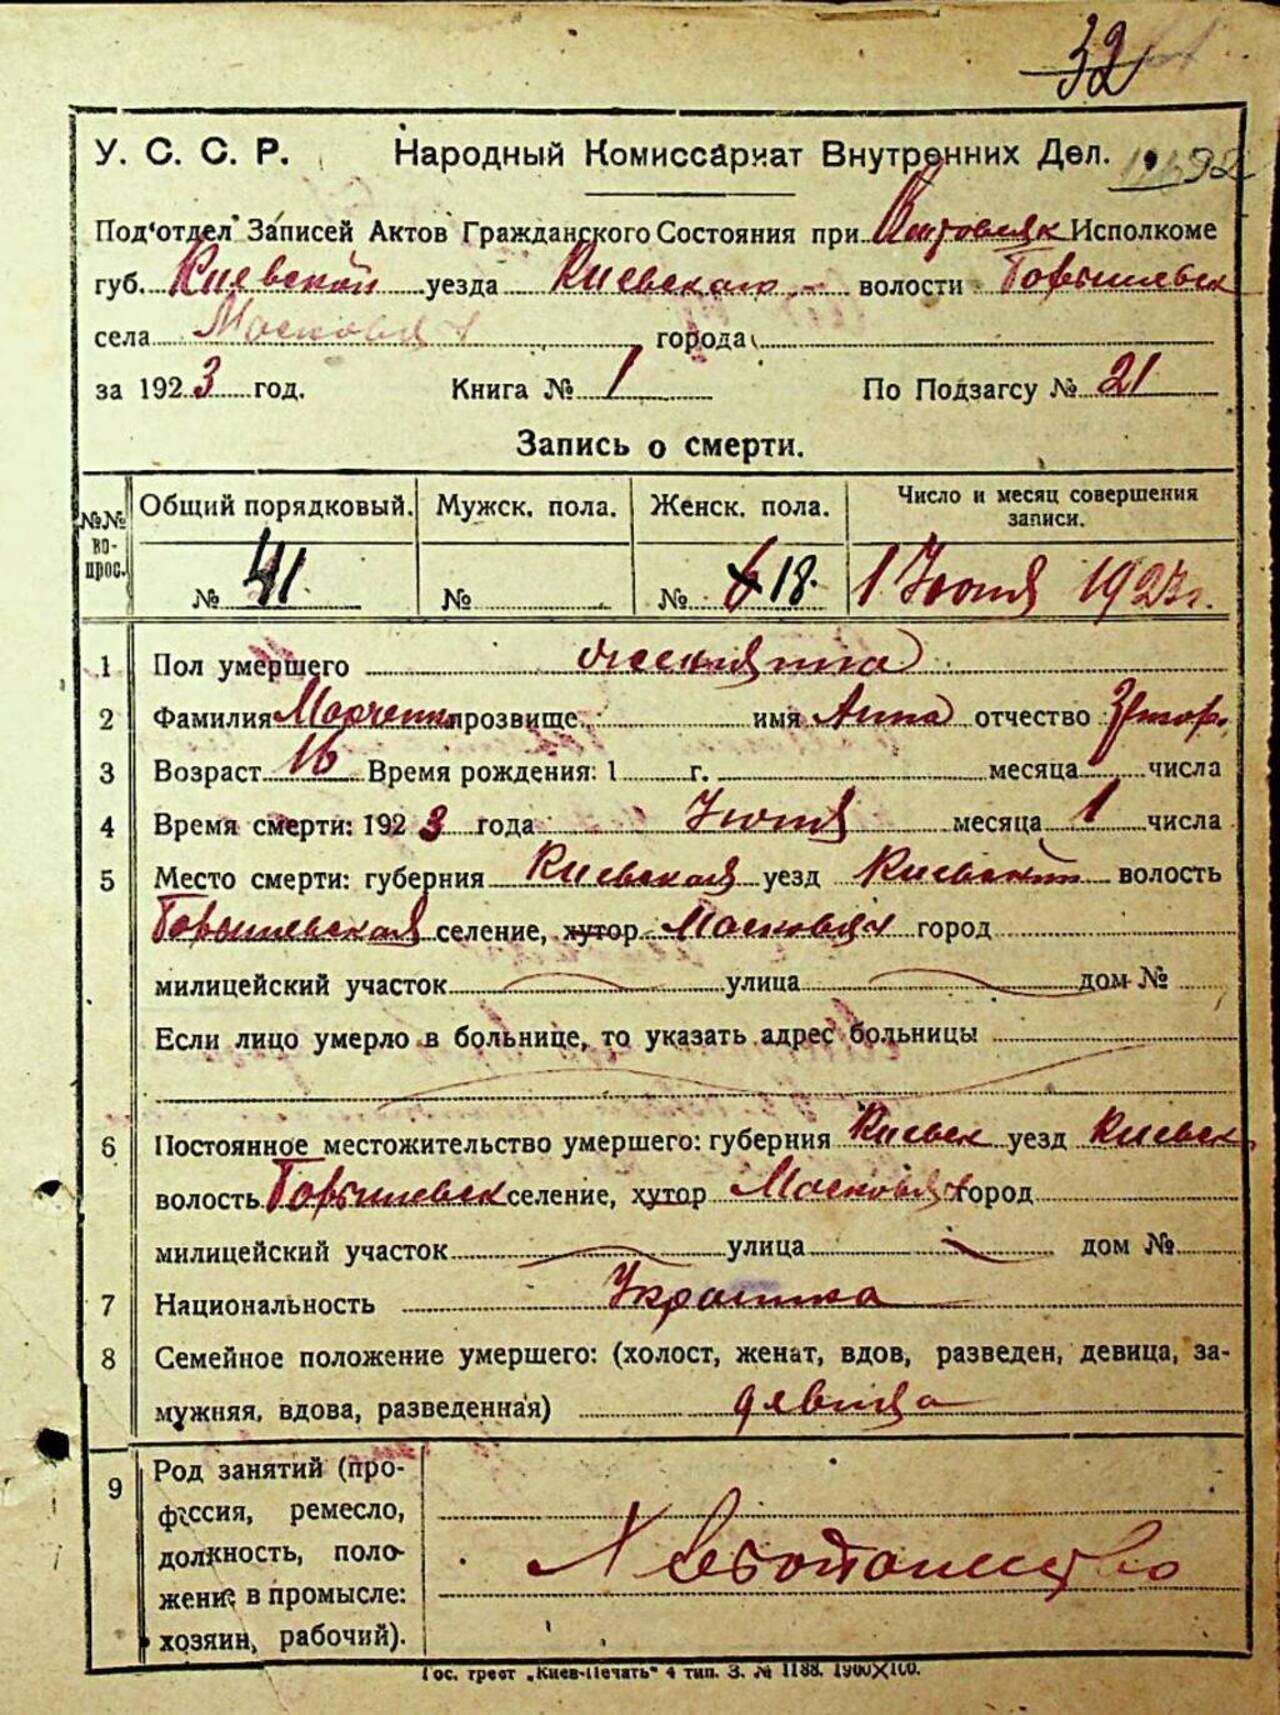 32
У. С. С. Р. Народный Комиссариат Внутренних Дел.
Под'отдел Записей Актов Гражданского Состояния при Исполкоме
губ. Киевской уезда Киевского волости
села города
за 1923 год. Книга № 1 По Подзагсу № 21
Запись о смерти.
№№ вопрос. Общий порядковый. Мужск. пола. Женск. пола. Число и месяц совершения записи.
№ 41 № № 6 18. 1 Июня 1923 г.
1 Пол умершего
2 Фамилия прозвище имя Анна отчество
3 Возраст 16 Время рождения: 1 г. месяца числа
4 Время смерти: 1923 года Июня месяца 1 числа
5 Место смерти: губерния Киевская уезд Киевский волость
селение, хутор город
милицейский участок улица дом №
Если лицо умерло в больнице, то указать адрес больницы
6 Постоянное местожительство умершего: губерния Киевск уезд Киевск
волость селение, хутор город
милицейский участок улица дом №
7 Национальность
8 Семейное положение умершего: (холост, женат, вдов, разведен, девица, за-
мужняя, вдова, разведенная) девица
9 Род занятий (про-
фессия, ремесло,
должность, поло-
жение в промысле:
хозяин, рабочий).
Хлебопашество
Гос. трест „Киев-Печать“ 4 тип. З. № 1188. 1900×100.